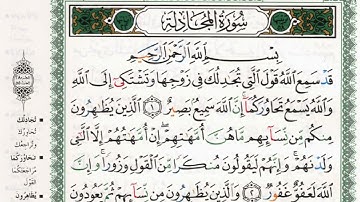 سُورَةُ المُجَادلَةِ
بِسْمِ ٱللَّهِ ٱلرَّحْمَٰنِ ٱلرَّحِيمِ
قَدْ سَمِعَ ٱللَّهُ قَوْلَ ٱلَّتِى تُجَٰدِلُكَ فِى زَوْجِهَا وَتَشْتَكِىٓ إِلَى ٱللَّهِ
وَٱللَّهُ يَسْمَعُ تَحَاوُرَكُمَآ إِنَّ ٱللَّهَ سَمِيعٌۢ بَصِيرٌ ١ ٱلَّذِينَ يُظَٰهِرُونَ
مِنكُم مِّن نِّسَآئِهِم مَّا هُنَّ أُمَّهَٰتِهِمْ إِنْ أُمَّهَٰتُهُمْ إِلَّا ٱلَّٰٓـِٔى
وَلَدْنَهُمْ وَإِنَّهُمْ لَيَقُولُونَ مُنكَرًا مِّنَ ٱلْقَوْلِ وَزُورًا وَإِنَّ
ٱللَّهَ لَعَفُوٌّ غَفُورٌ ٢ وَٱلَّذِينَ يُظَٰهِرُونَ مِن نِّسَآئِهِمْ ثُمَّ يَعُودُونَ
تُجَادِلُكَ
تُحَاوِرُكَ
وَتُرَاجِعُكَ
تَحَاوُرَكُمَا
مُرَاجَعَتَكُمَا
القَوْلَ
يُظَاهِرُونَ